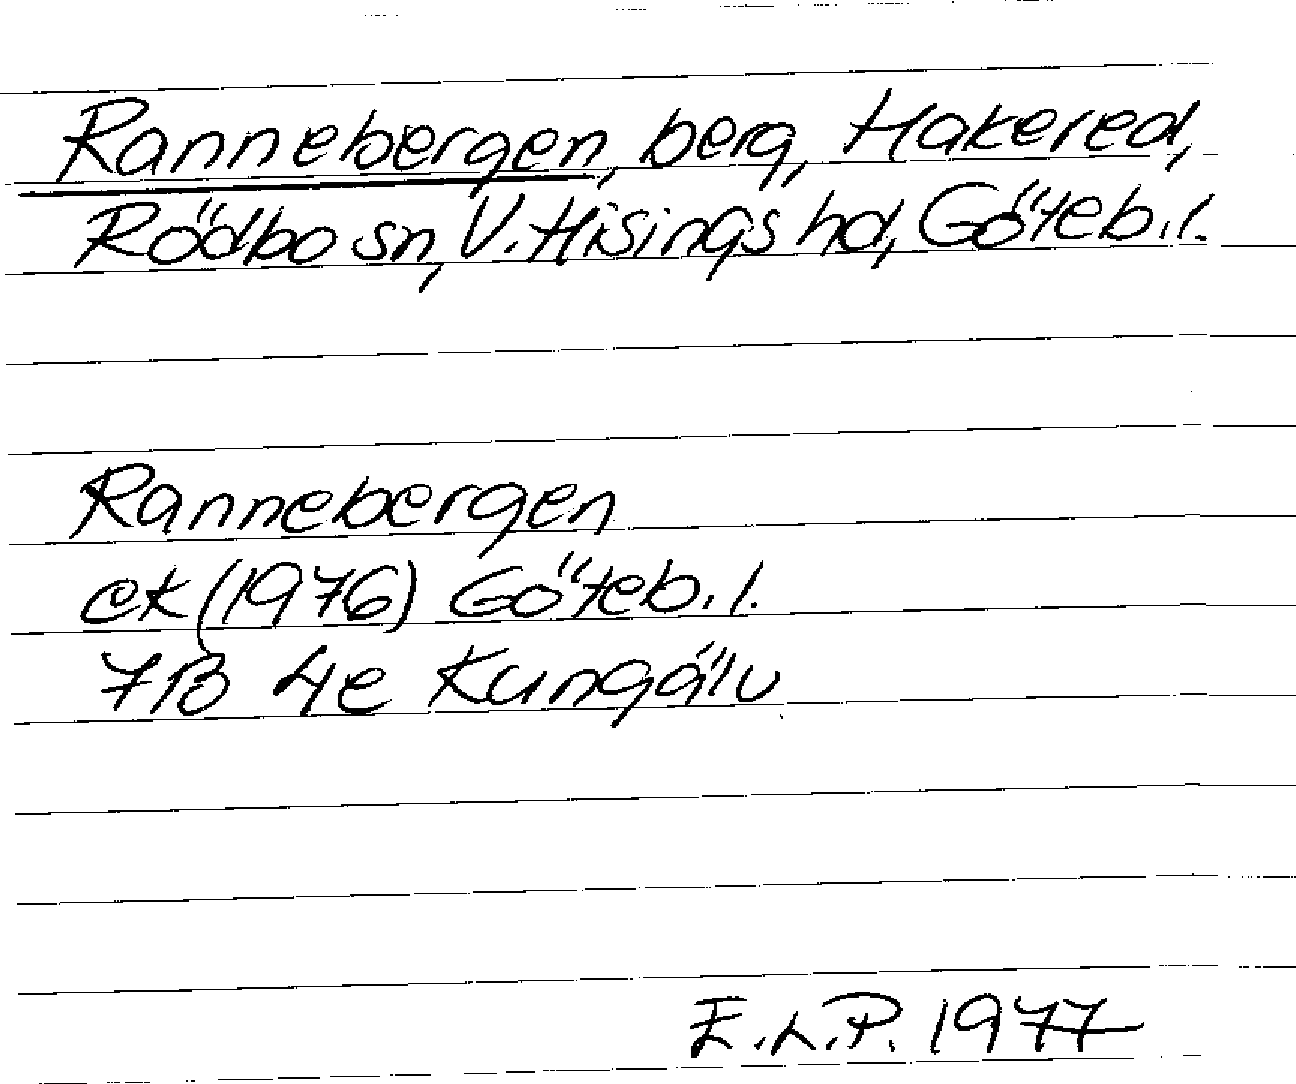 Rannebergen, berg, Hakered,
Rödbo sn, V. Hisings hd, Göteb. l.
Rannebergen
ek (1976) Göteb. l.
7B 4e Kungälv
E.L.P. 1977